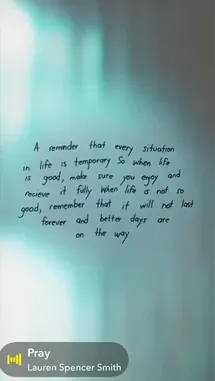 A reminder that every situation
in life is temporary So when life
is good, make sure you enjoy and
recieve it fully When life is not so
good, remember that it will not last
forever and better days are
on the way
Pray
Lauren Spencer Smith